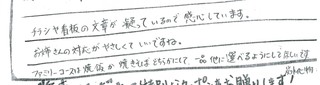 チラシや看板の文章が凝っているので感心しています。
お姉さんの対応がやさしくていいですね。
ファミリーコースは焼飯か焼そばどちらかにして一品他に選べるようにしてほしいです